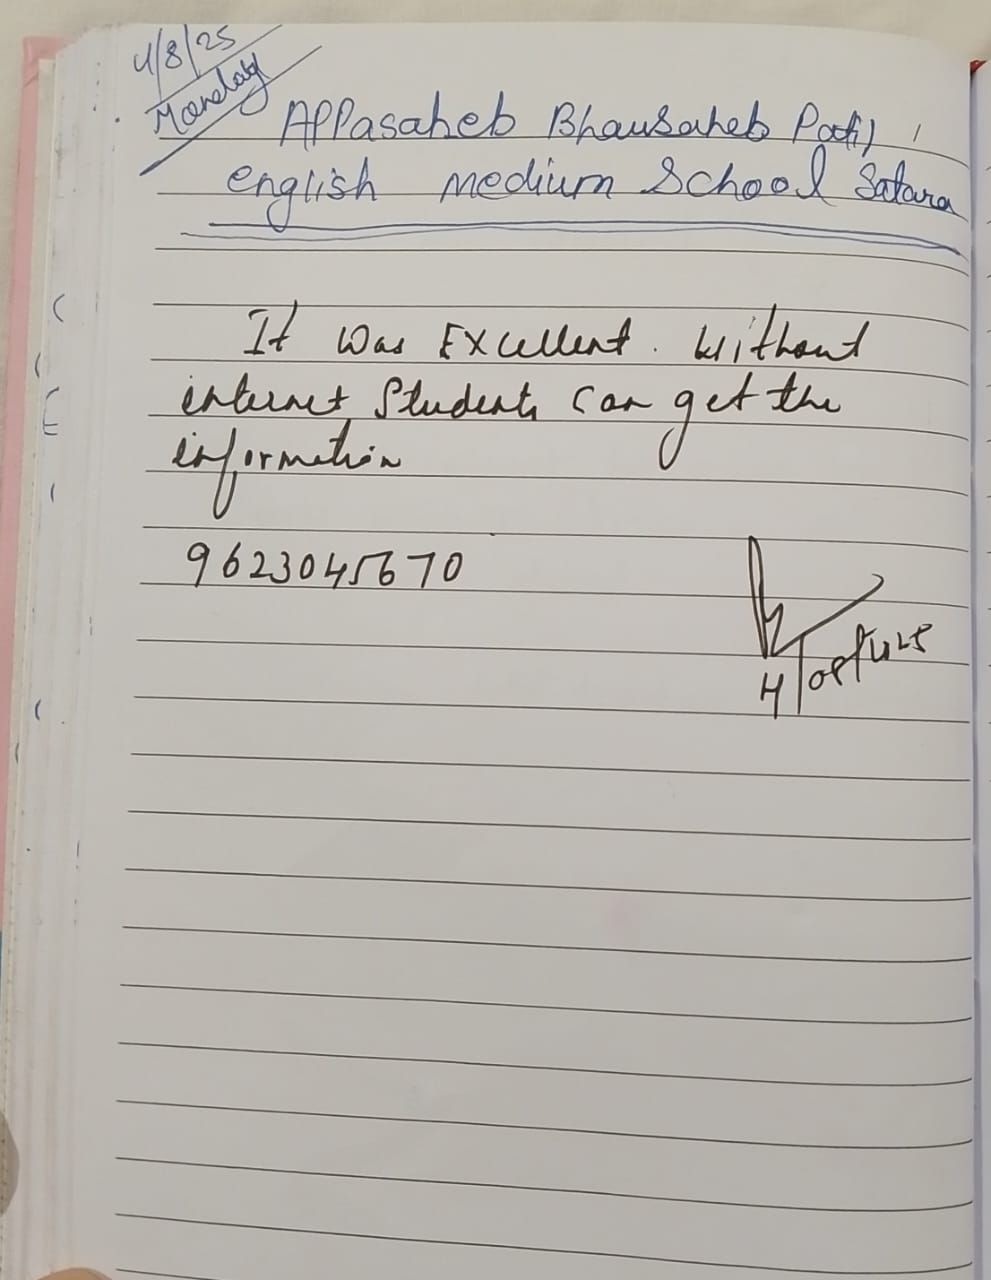 4/8/25
Monday
Appasaheb Bhausaheb Patil,
english medium School Satara
It was Excellent. Without
internet Students can get the
information
9623045670
4/08/2025